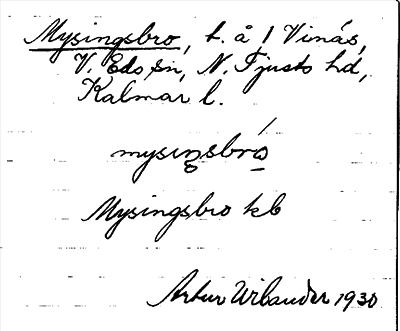 Mysingsbro, t. å 1 Vinäs,
V. Eds sn, N. Tjusts hd,
Kalmar l.
mysiŋsbró̲
Mysingsbro kb
Artur Wilander 1930